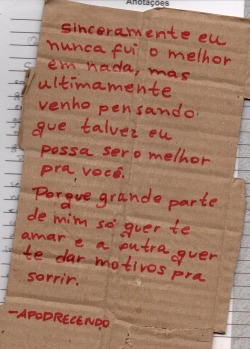 Anotações
sinceramente eu
nunca fui o melhor
em nada, mas
ultimamente
venho pensando
que talvez eu
possa ser o melhor
pra você.
Porque grande parte
de mim só quer te
amar e a outra quer
te dar motivos pra
sorrir.
-APODRECENDO